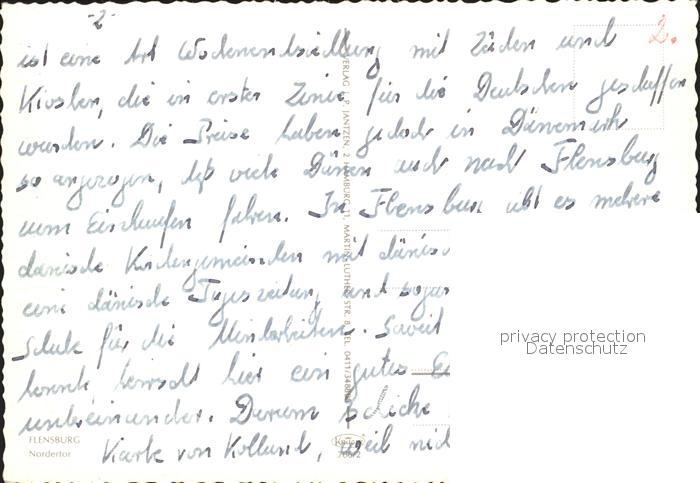 -2-
2.
ist eine Art Wochenendsiedlung mit Läden und
Kiosken, die in erster Linie für die Deutschen geschaffen
wurden. Die Preise haben jedoch in Dänemark
so angezogen, daß viele Dänen auch nach Flensburg
zum Einkaufen fahren. In Flensburg gibt es mehrere
dänische Kirchengemeinden mit dänisc
eine dänische Tageszeitung und sogar
Schule für die Minderheiten. Soweit
konnte, herrscht hier ein gutes
untereinander. Darum schicke
Karte von Kolland, weil nic
FLENSBURG
Nordertor
VERLAG J. P. JANTZEN, 2 HAMBURG 11, MARTIN-LUTHER-STR. 8, TEL. 0411/348
privacy protection
Datenschutz